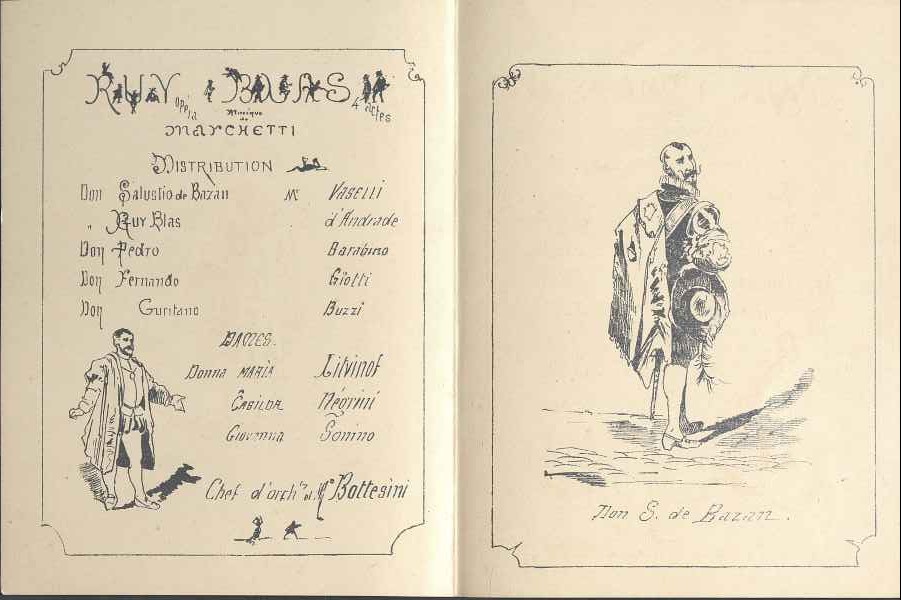 RUY BLAS
opéra
4 actes
Musique
de
MARCHETTI
DISTRIBUTION
Don Salustio de Bazan Mr VASELLI
" Ruy Blas d'Andrade
Don Pedro Barabino
Don Fernando Giotti
Don Guritano Buzzi
DAMES.
Donna MARIA Litvinof
CASILDA Négrini
Giovanna Sonino
Chef d'orchre Bottesini
Don S. de Bazan.